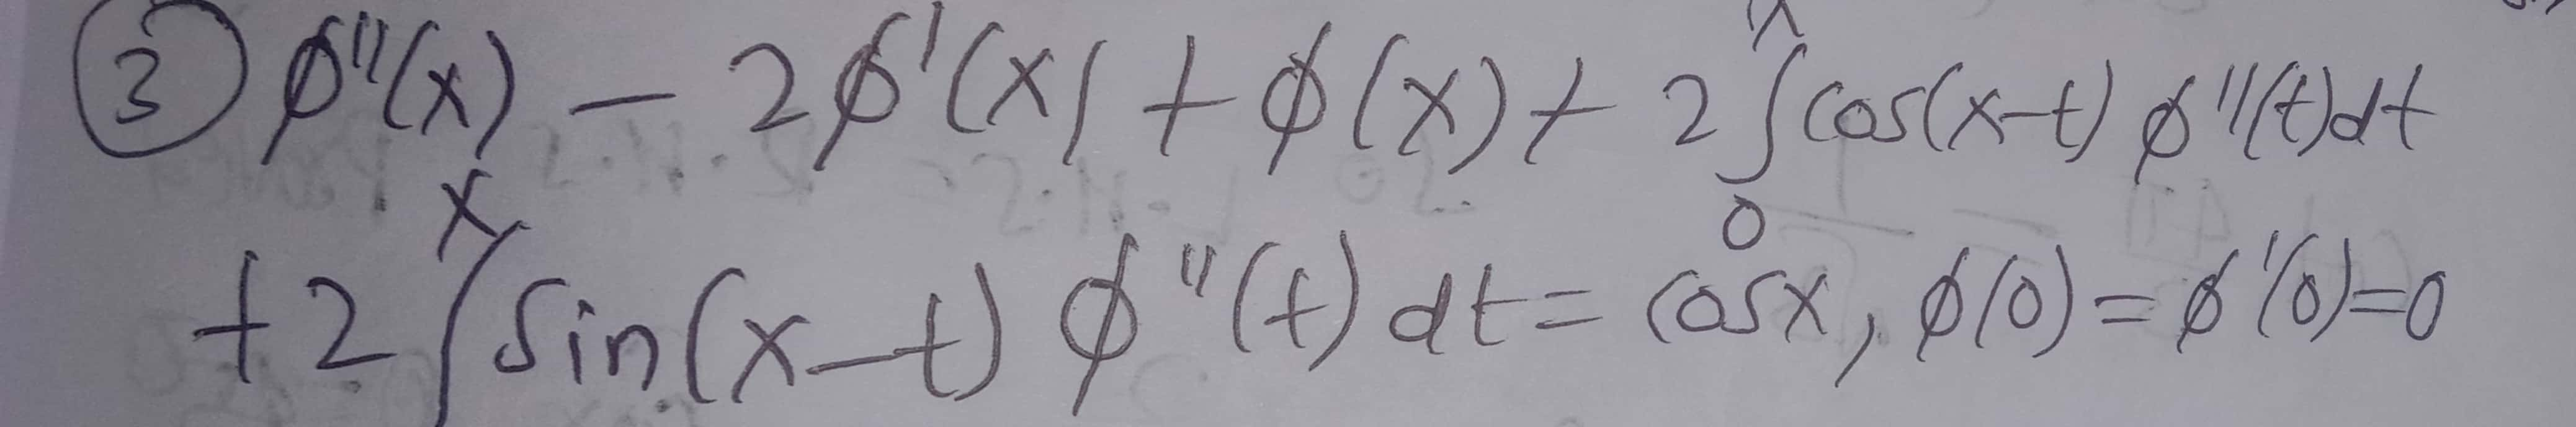 ③ φ''(x) - 2φ'(x) + φ(x) + 2∫₀ˣ cos(x-t) φ''(t)dt
+ 2∫ˣ sin(x-t) φ''(t) dt = cosx, φ(0) = φ'(0)=0